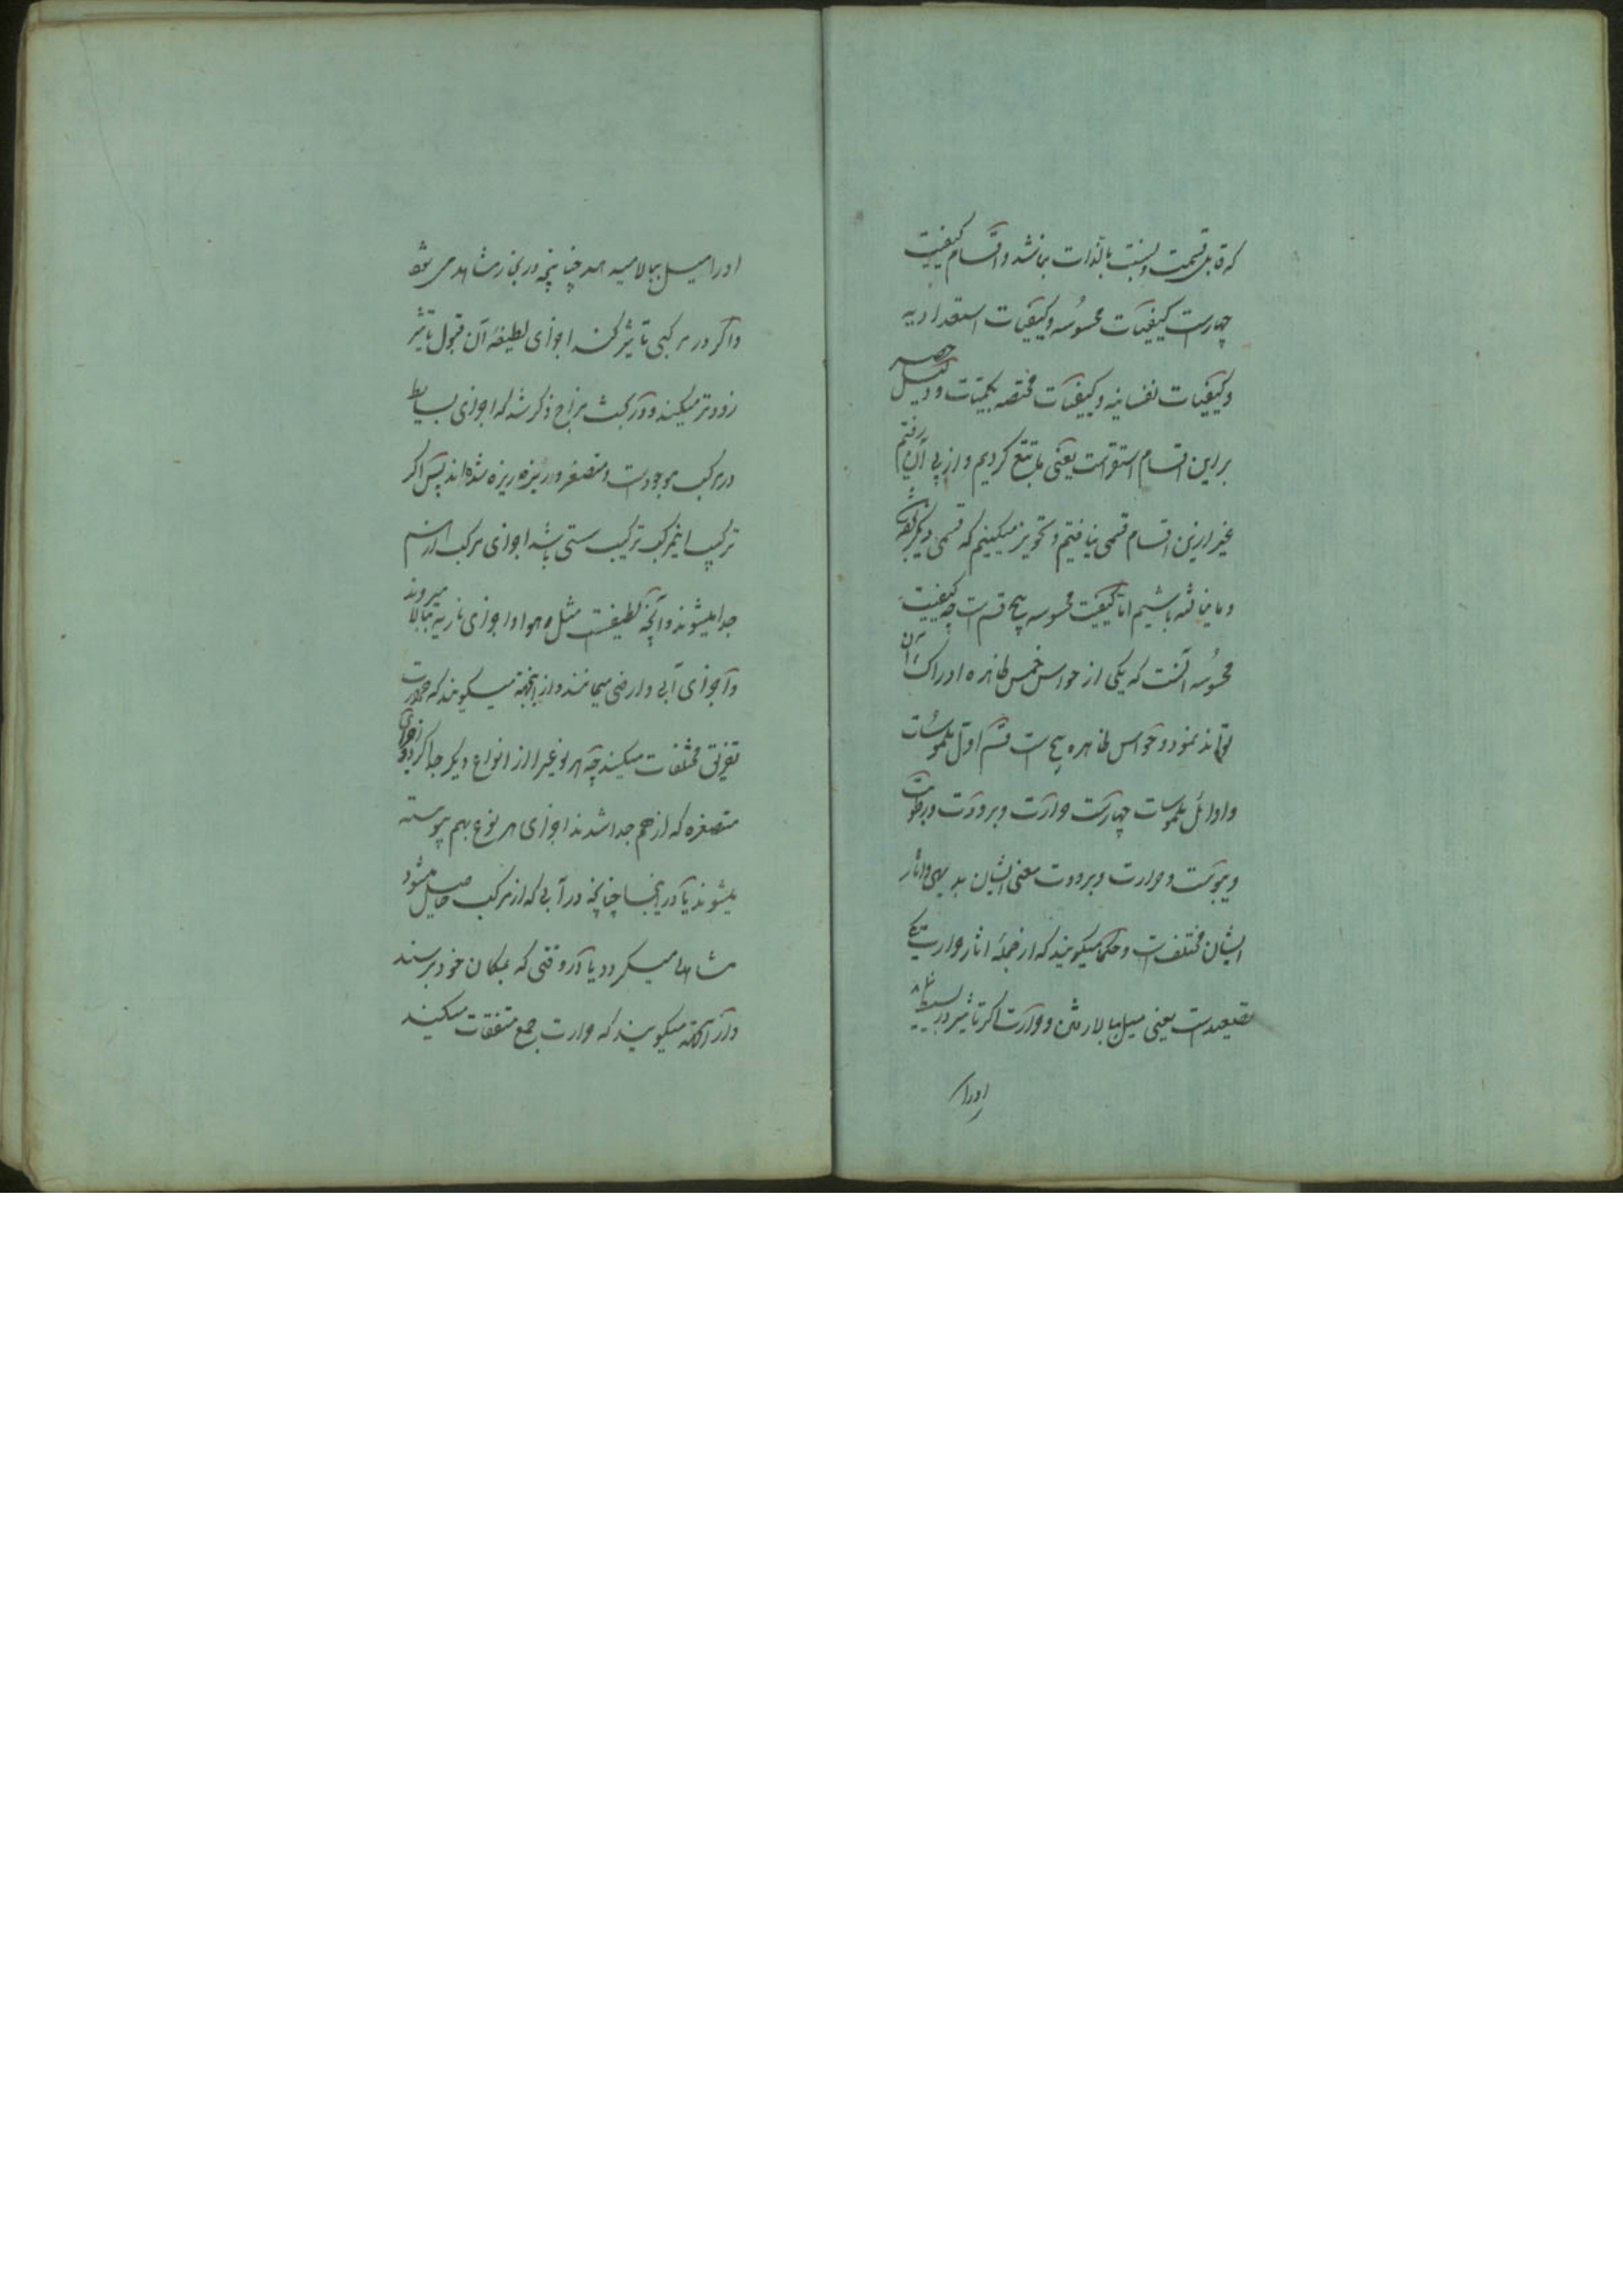 که قابل قسمت و نسبت بالذات نباشد و اقسام کیفیت
چهارست کیفیات محسوسه و کیفیات استعدادیه
و کیفیات نفسانیه و کیفیات مختصه بکمیات و دلیل حصر
برین اقسام استقراست یعنی ما تتبع کردیم و از پی آن رفتیم
غیر ازین اقسام قسمی نیافتیم و تجویز میکنیم که قسمی دیگر باشد
و ما نیافته باشیم اما کیفیت محسوسه پنج قسم است چه کیفیت
محسوسه آنست که یکی از حواس خمس ظاهره ادراک آن
تواند نمود و حواس ظاهره پنج است قسم اول ملموسات
و اوائل ملموسات چهارست حرارت و برودت و رطوبت
و یبوست و حرارت و برودت معنی ایشان بدیهی و آثار
ایشان مختلف است و حکما میگویند که از جمله آثار حرارت یکی
تصعیدست یعنی میل ببالا رفتن و حرارت اگر تاثیر در بسیط
اورا
اورا میل ببالا میدهد چنانچه در بخار مشاهد می شود
و اگر در مرکبی تاثیر کند اجزای لطیفه آن قبول تاثیر
زودتر میکند و در بحث مزاج ذکر شد که اجزای بسایط
در مرکب موجودست و متصغر و ریزه ریزه شده اند پس اگر
ترکیب این مرکب ترکیب سستی باشد اجزای مرکب از هم
جدا میشوند و آنچه لطیفست مثل هوا و اجزای ناریه ببالا میروند
و اجزای آبی و ارضی میمانند و ازینجهة میگویند که حرارت
تفریق مختلفات میکند چه هر نوعی را از انواع دیگر جدا کرد و اجزای
متصغره که از هم جدا شدند اجزای هر نوع بهم پیوسته
میشوند یا در اینجا چنانچه در آبی که از مرکب حاصل میشود
مشاهد میگردد یا در وقتی که بمکان خود برسند
و از اینجهة میگویند که حرارت جمع متفقات میکند